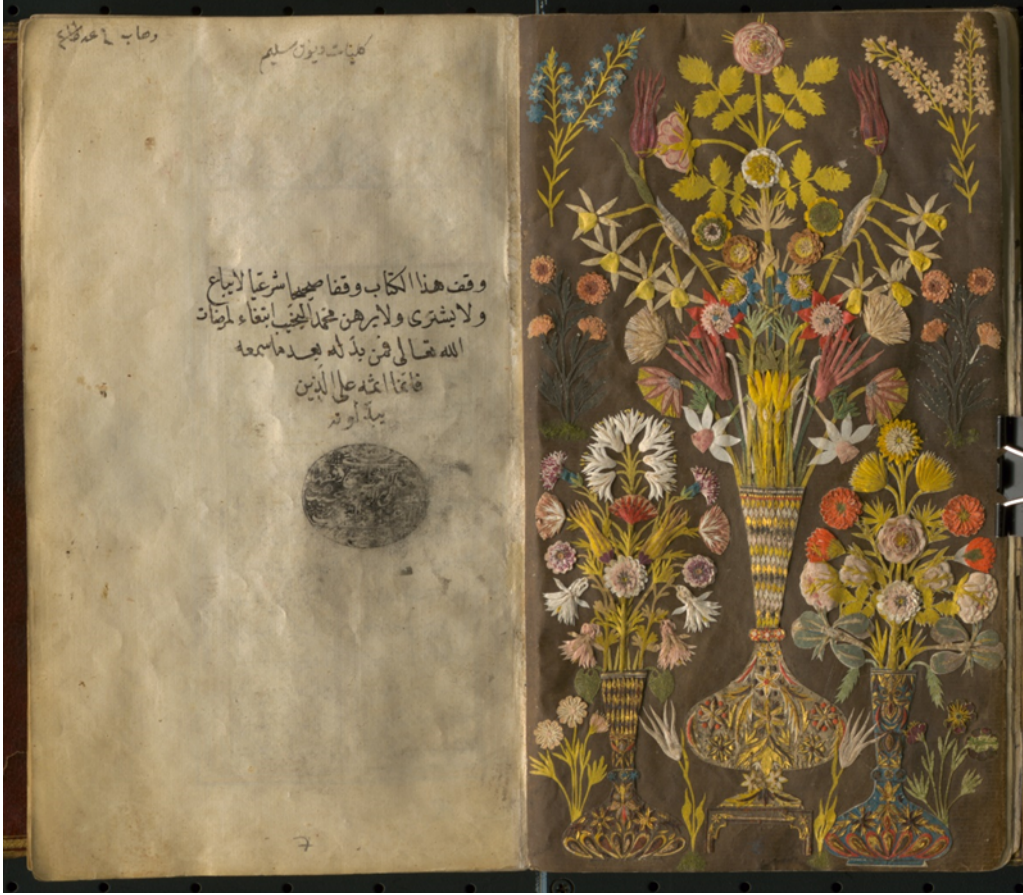 كليات ديوان سليم
وقف هذا الكتاب وقفا صحيحا شرعيا لا يباع
ولا يشترى ولا يرهن محمد ابتغاء لمرضات
الله تعالى فمن بدله بعد ما سمعه
فانما اثمه على الذين
يبدلونه